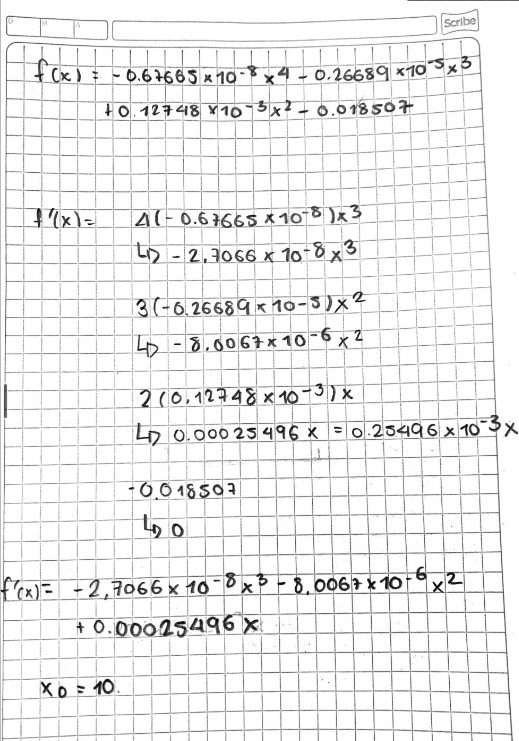 Scribe
D M A
f(x) = -0.67665 x 10^-8 x^4 - 0.26689 x 10^-5 x^3
+ 0.12748 x 10^-3 x^2 - 0.018507
f'(x) = 4(-0.67665 x 10^-8) x^3
↳ -2,7066 x 10^-8 x^3
3(-0.26689 x 10^-5) x^2
↳ -8.0067 x 10^-6 x^2
2(0,12748 x 10^-3) x
↳ 0.00025496 x = 0.25496 x 10^-3 x
-0.018507
↳ 0
f'(x) = -2,7066 x 10^-8 x^3 - 8,0067 x 10^-6 x^2
+ 0.00025496 x
x0 = 10.